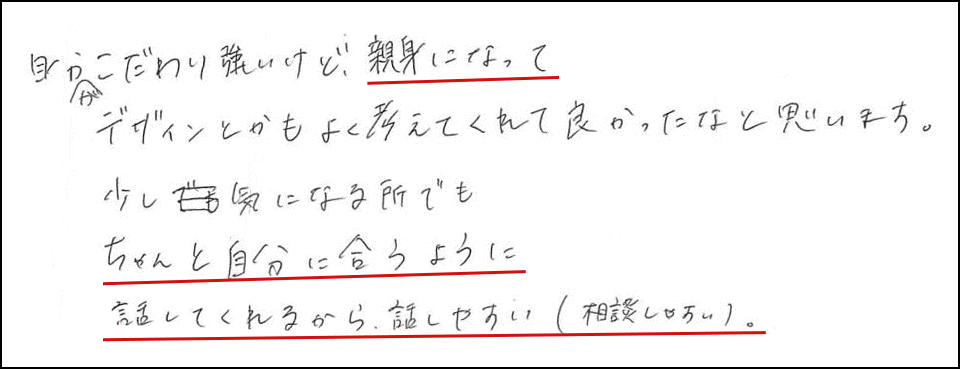 自分がこだわり強いけど、親身になって
デザインとかもよく考えてくれて良かったなと思います。
少し気になる所でも
ちゃんと自分に合うように
話してくれるから、話しやすい(相談しやすい)。